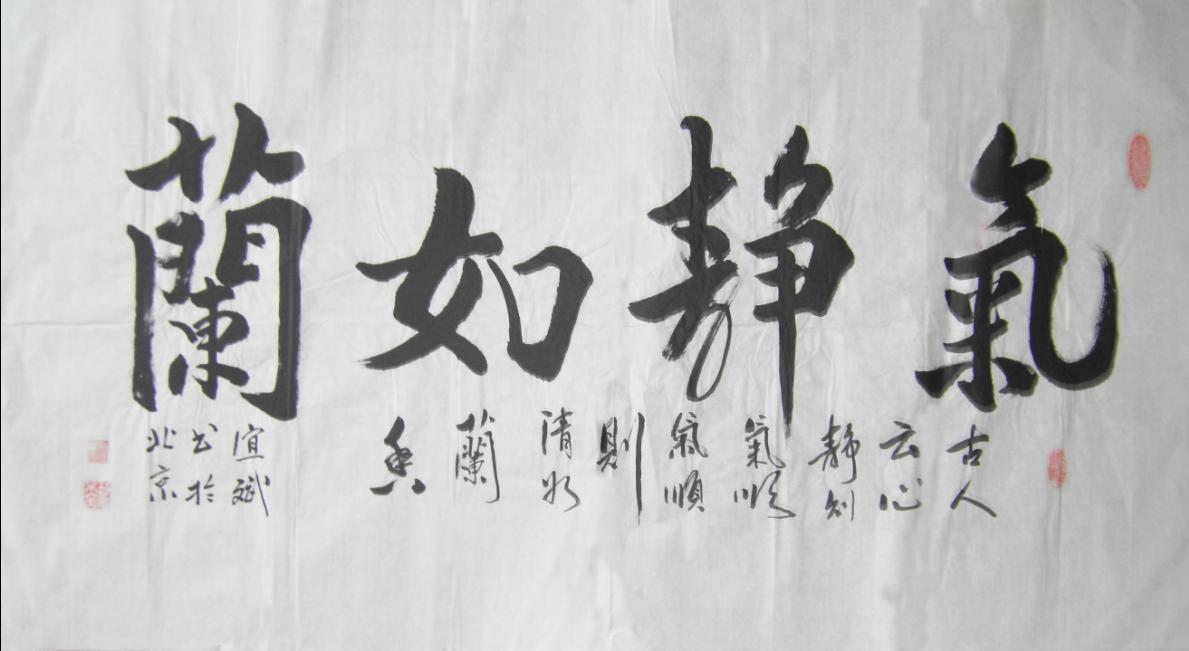 氣静如蘭
古人
云心
静則
氣順
氣順
則
清如
蘭
香
宜斌
書於
北京